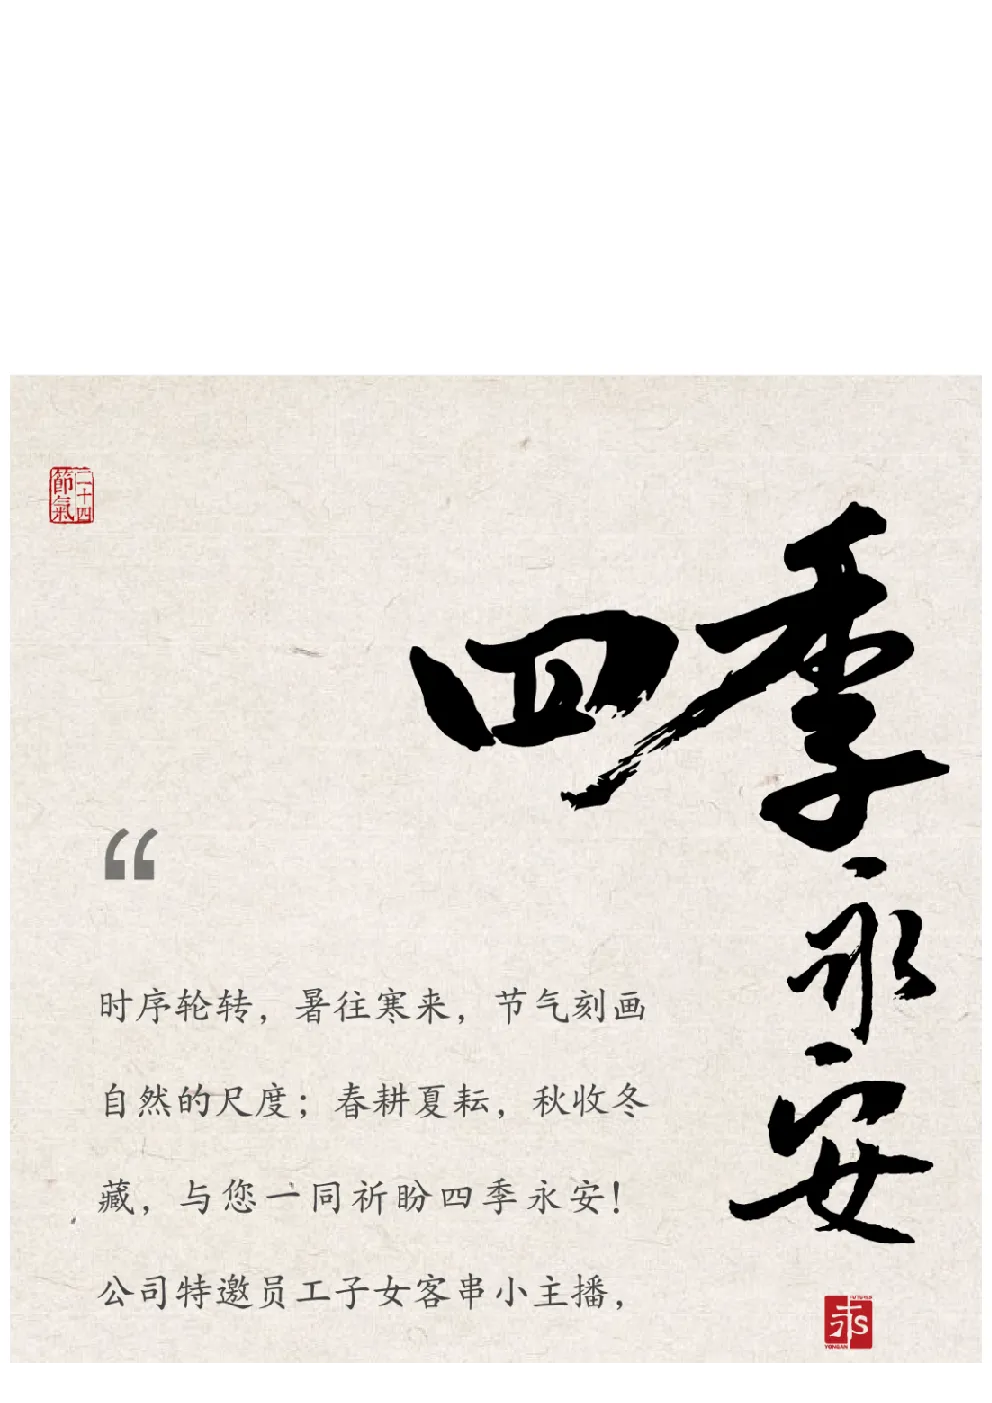 二十四
節氣
四季
永安
“
时序轮转，暑往寒来，节气刻画
自然的尺度；春耕夏耘，秋收冬
藏，与您一同祈盼四季永安！
公司特邀员工子女客串小主播，
YONGAN